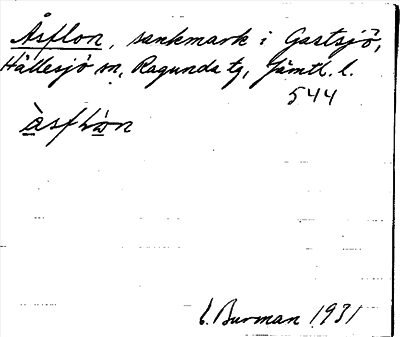 Åsflon, sankmark i Gastsjö,
Hällesjö sn, Ragunda tg, Jämtl. l.
544
E. Burman 1931